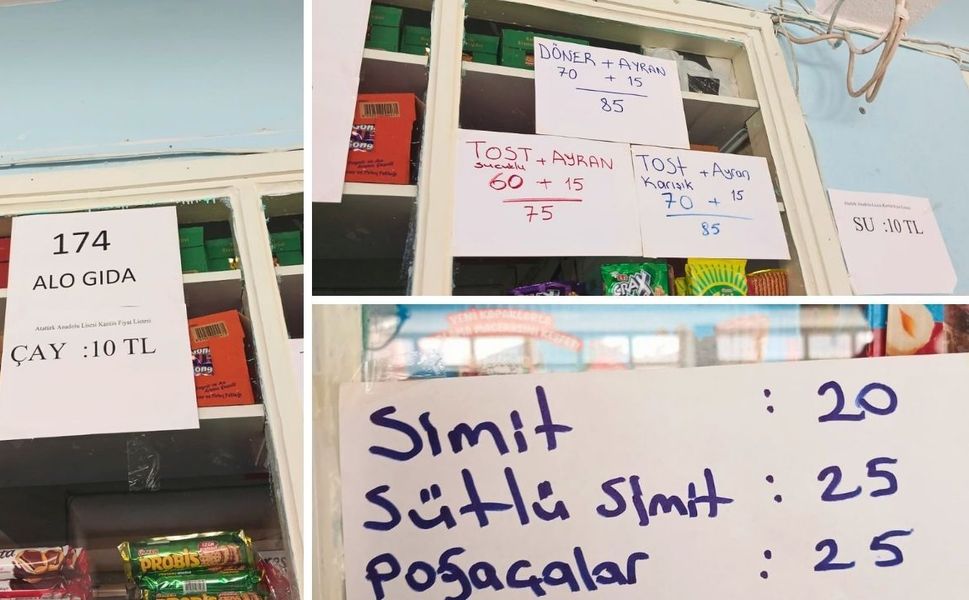 174
ALO GIDA
Atatürk Anadolu Lisesi Kantin Fiyat Listesi
ÇAY :10 TL
ÜLKER
PROBİS
DÖNER + AYRAN
70 + 15
85
TOST + AYRAN
sucuklu
60 + 15
75
TOST + Ayran
Karışık
70 + 15
85
Atatürk Anadolu Lisesi Kantin Fiyat Listesi
SU :10 TL
CRAX
YENİ KAPAKLARLA
Simit : 20
Sütlü Simit : 25
Poğaçalar : 25